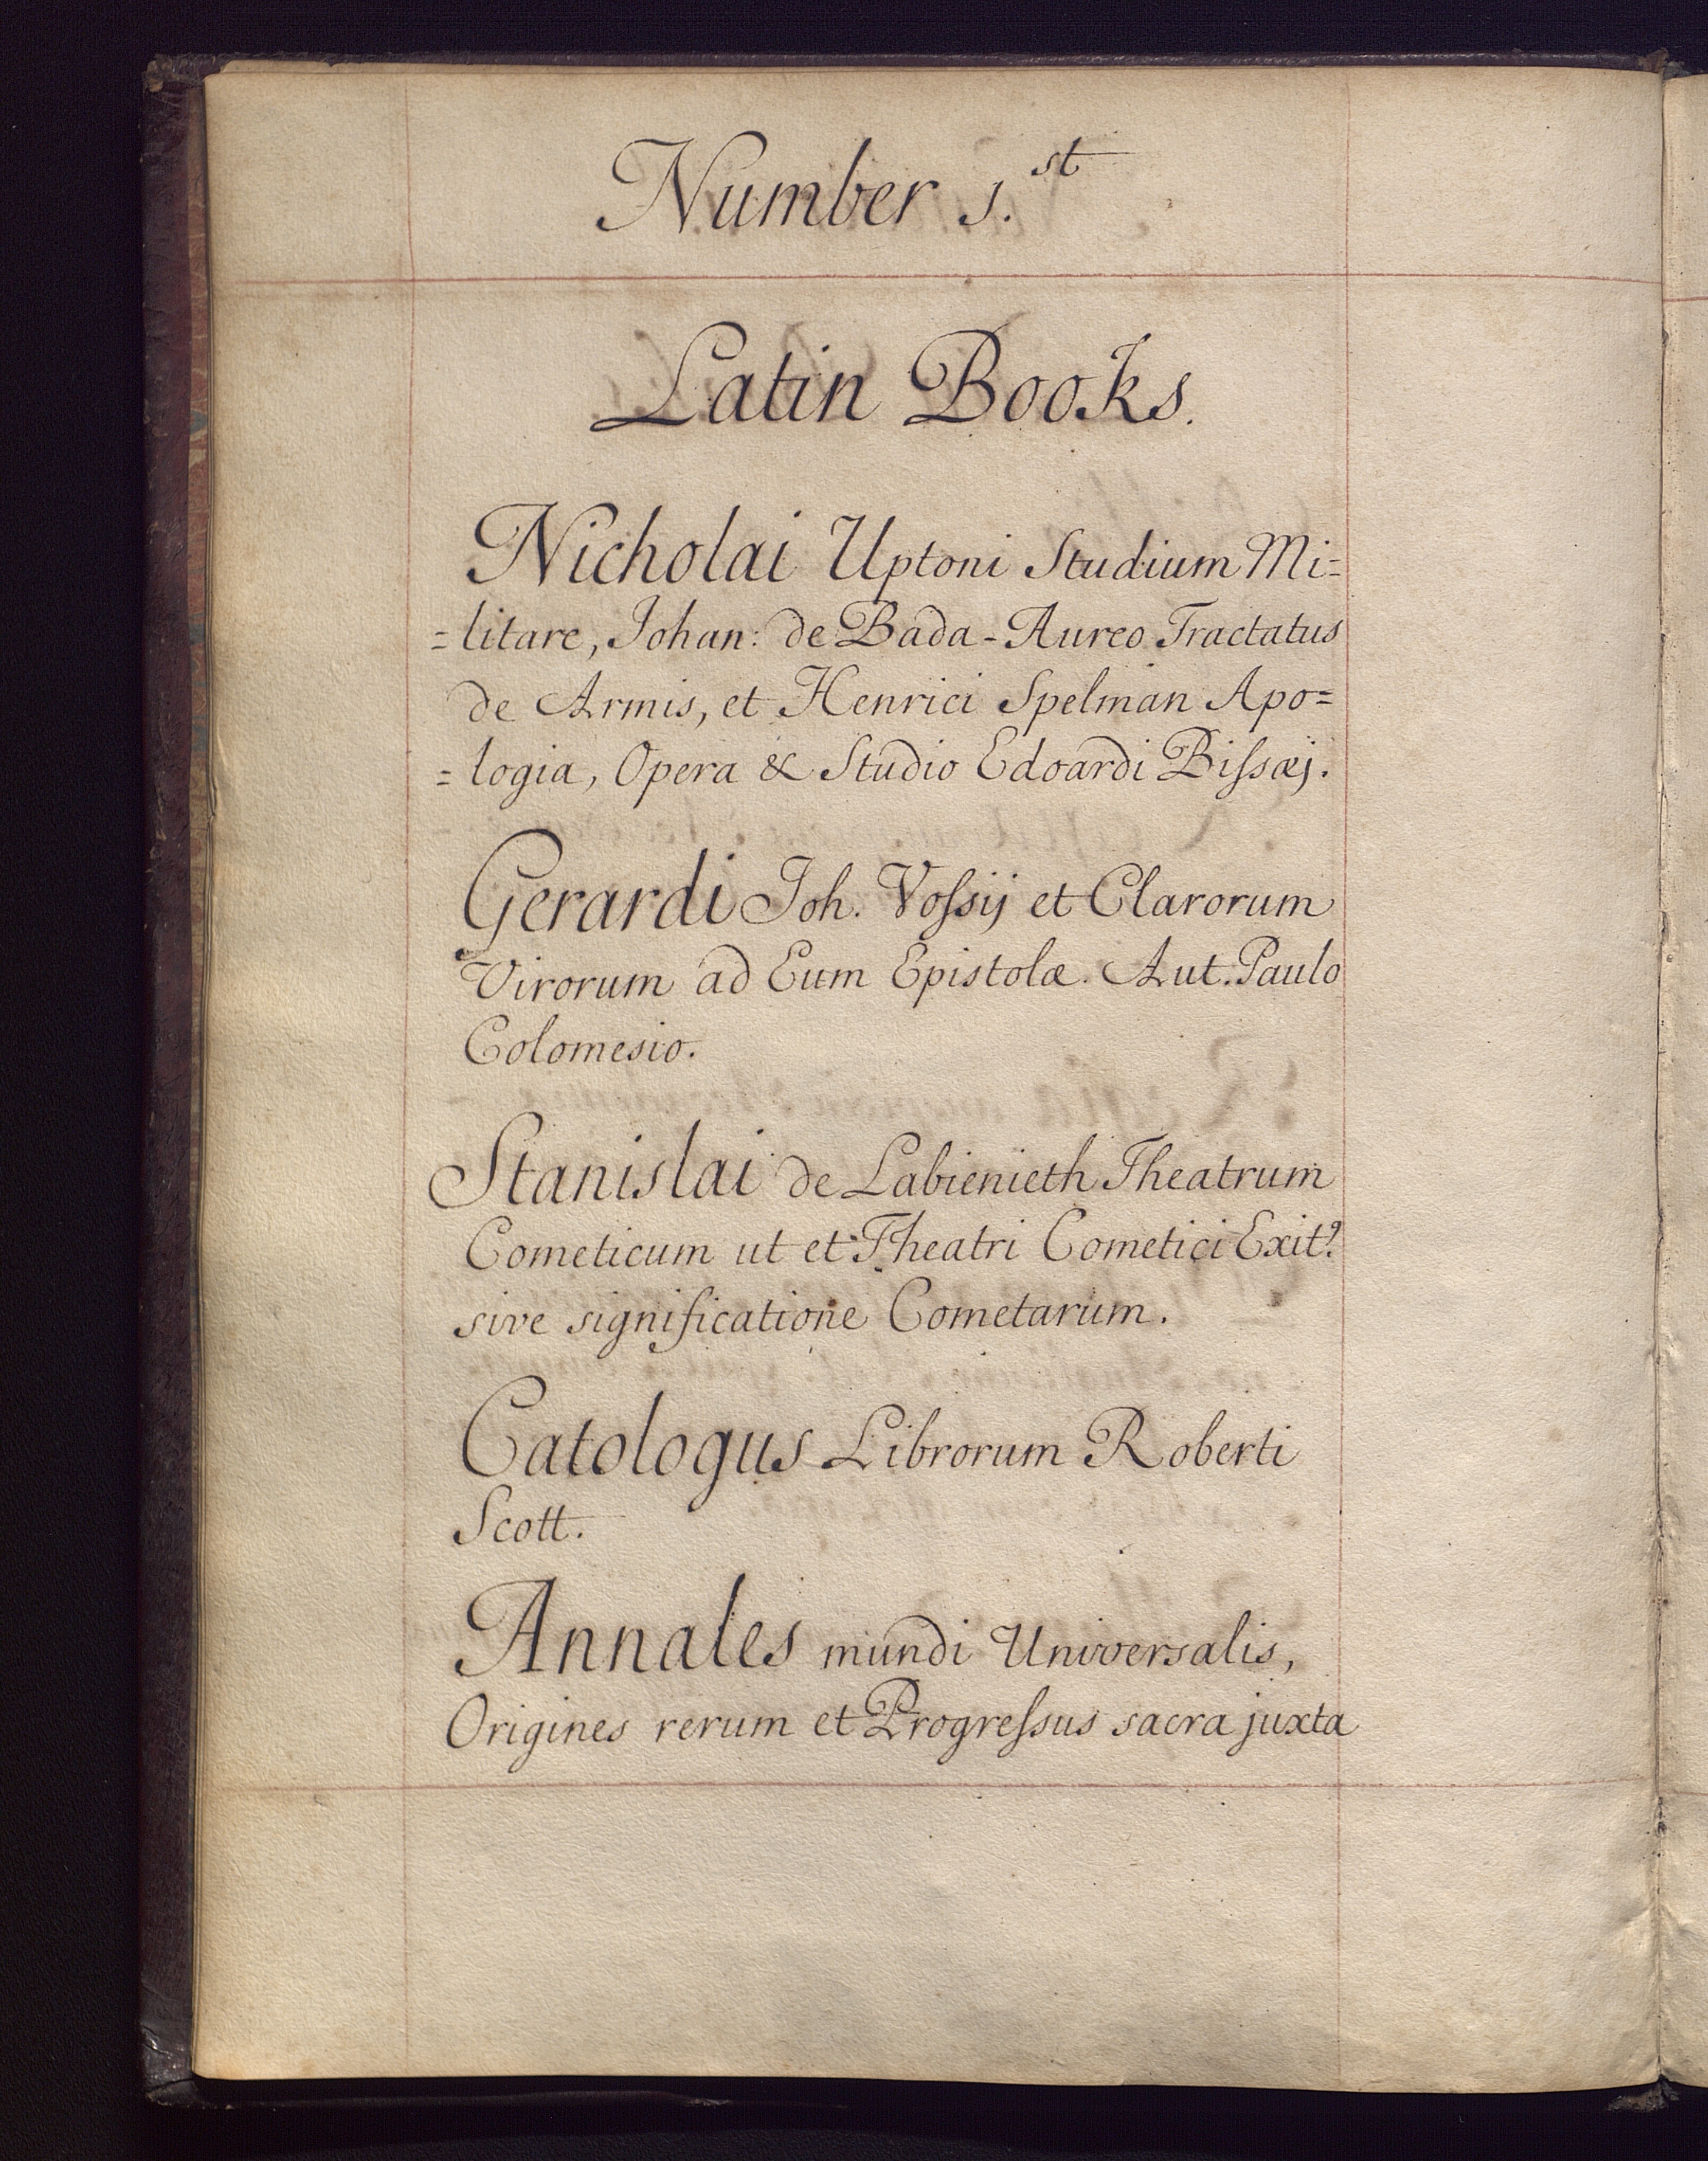 Number 1.st
Latin Books.
Nicholai Uptoni Studium Mi=
=litare, Johan: de Bada-Aureo Tractatus
de Armis, et Henrici Spelman Apo=
=logia, Opera & Studio Edoardi Bissæj.
Gerardi Joh. Vossij et Clarorum
Virorum ad Eum Epistolæ. Aut. Paulo
Colomesio.
Stanislai de Labienieth Theatrum
Cometicum ut et Theatri Cometici Exit9.
sive significatione Cometarum.
Catologus Librorum Roberti
Scott.
Annales mundi Universalis,
Origines rerum et Progressus sacra juxta